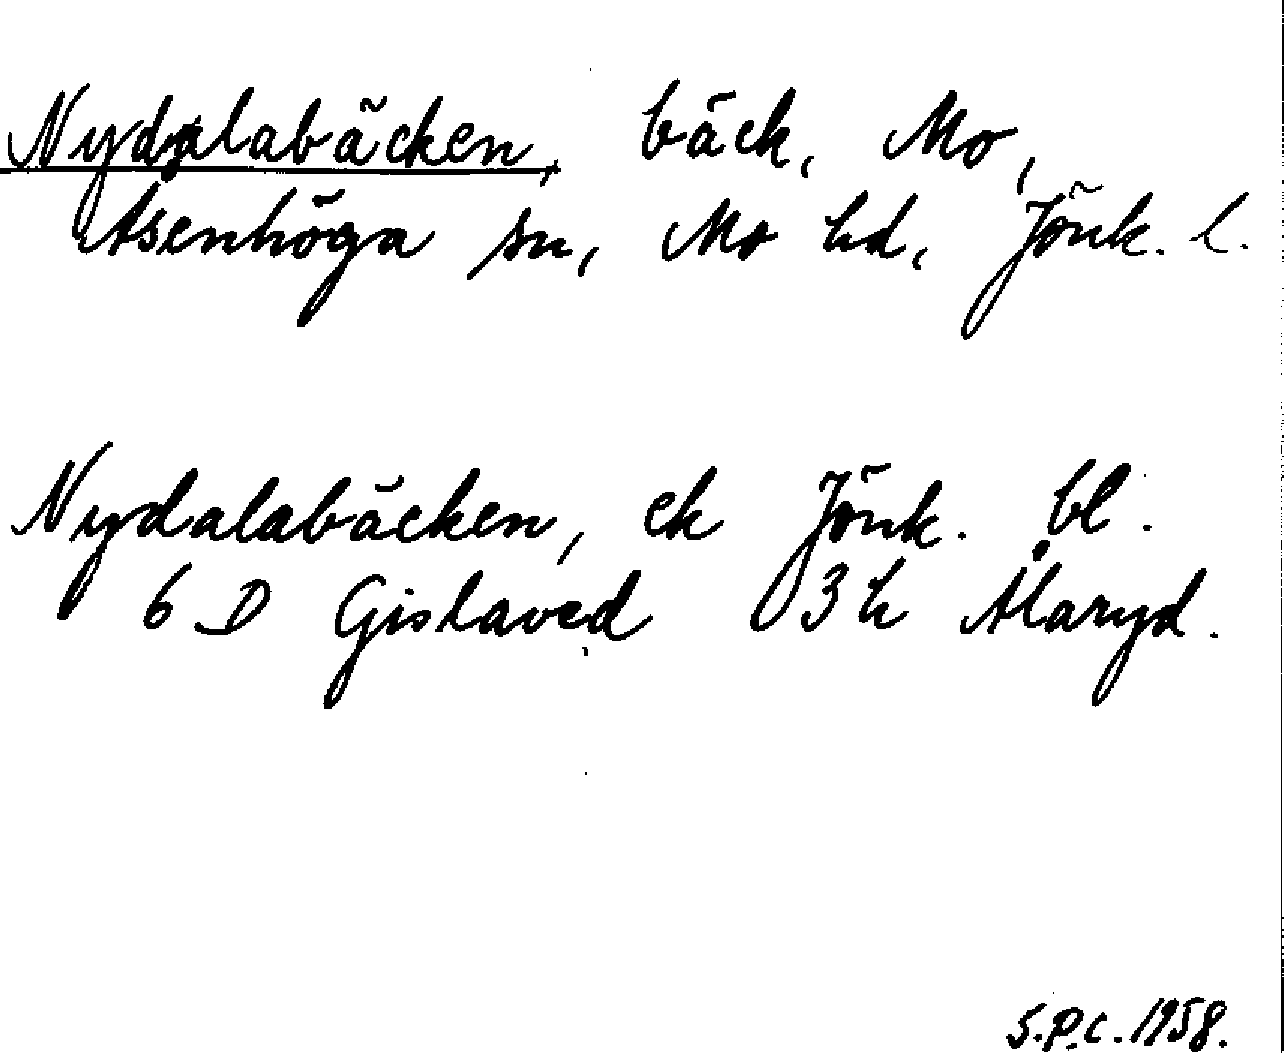 Nydalabäcken, bäck, Mo,
Åsenhöga sn, Mo hd, Jönk. l.
Nydalabäcken, ek Jönk. bl.
6 D Gislaved 3 h Ålaryd.
S.P.C. 1958.